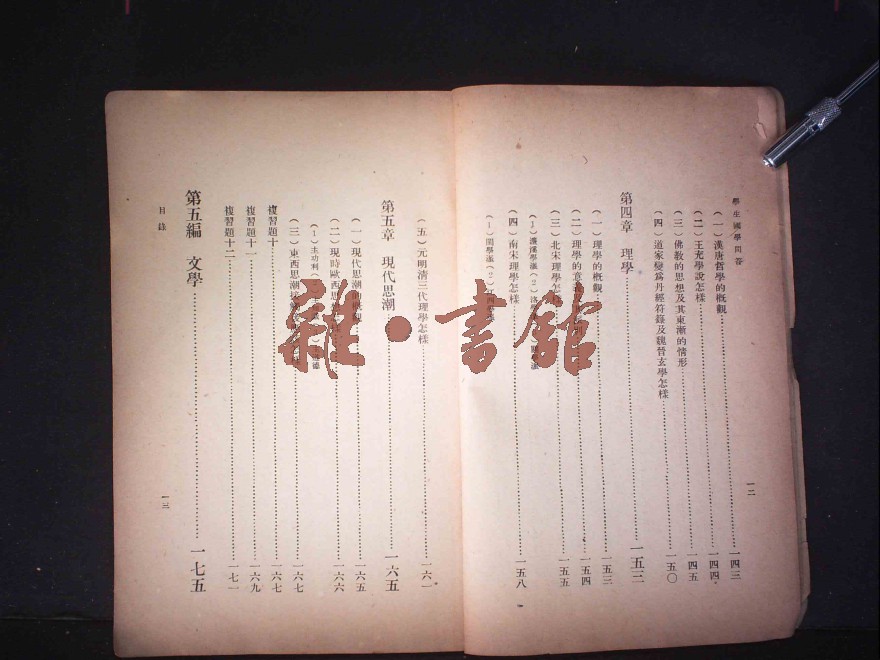 學生國學問答
(一)漢唐哲學的概觀……一四三
(二)王充學說怎樣……一四四
(三)佛教的思想及其東漸的情形……一四五
(四)道家變爲丹經符籙及魏晉玄學怎樣……一五〇
第四章 理學……一五三
(一)理學的概觀……一五三
(二)理學的意……一五四
(三)北宋理學怎……一五五
(1)濂溪學派(2)洛
(四)南宋理學怎樣……一五八
(1)閩學派(2)
一二
(五)元明清三代理學怎樣……一六一
第五章 現代思潮……一六五
(一)現代思潮的概觀……一六五
(二)現時歐西思……一六六
(1)主功利
(三)東西思潮……一六七
複習題十……一六七
複習題十一……一六九
複習題十二……一七一
第五編 文學……一七五
目錄
一三
雜·書館